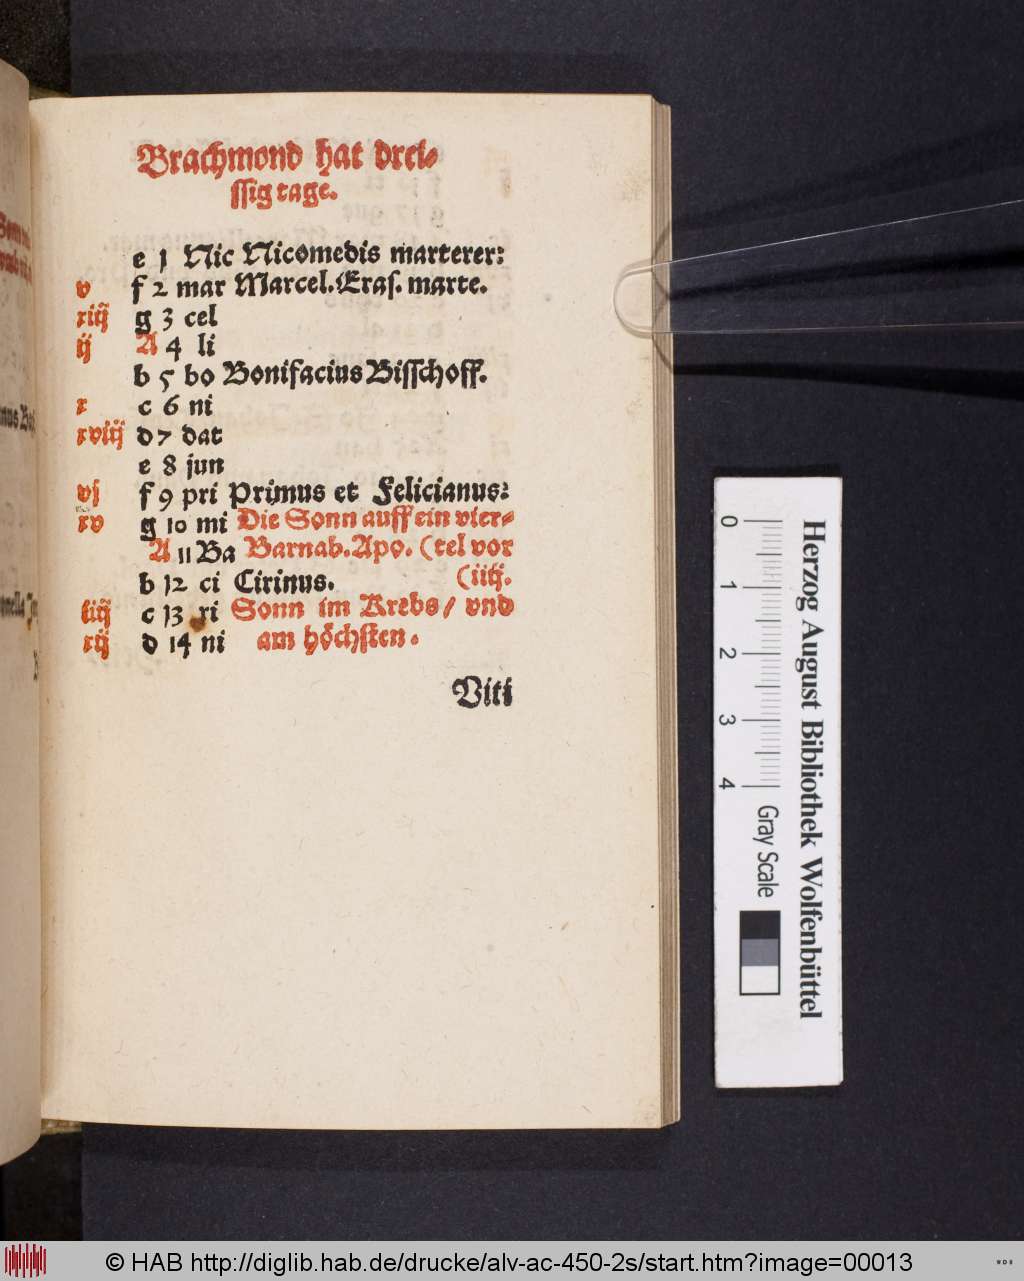 Brachmond hat drei-
ſſig tage.
e 1 Nic Nicomedis marterer:
v f 2 mar Marcel. Eraſ. marte.
xiij g 3 cel
ij A 4 li
b 5 bo Bonifacius Biſſchoff.
x c 6 ni
xviij d 7 dat
e 8 jun
vj f 9 pri Primus et Felicianus:
xv g 10 mi Die Sonn auff ein vier-
A 11 Ba Barnab. Apo. (tel vor
b 12 ci Cirinus. (iiij.
iiij c 13 ri Sonn im Krebs / vnd
xij d 14 ni am höchſten.
Viti
Herzog August Bibliothek Wolfenbüttel
0 1 2 3 4 Gray Scale
© HAB http://diglib.hab.de/drucke/alv-ac-450-2s/start.htm?image=00013